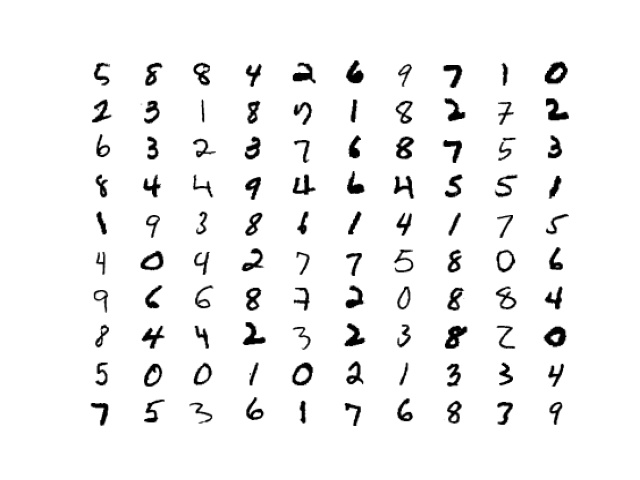 5 8 8 4 2 6 9 7 1 0
2 3 1 8 7 1 8 2 7 2
6 3 2 3 7 6 8 7 5 3
8 4 4 9 4 6 4 5 5 1
1 9 3 8 6 1 4 1 7 5
4 0 9 2 7 7 5 8 0 6
9 6 6 8 7 2 0 8 8 4
8 4 4 2 3 2 3 8 2 0
5 0 0 1 0 2 1 3 3 4
7 5 3 6 1 7 6 8 3 9